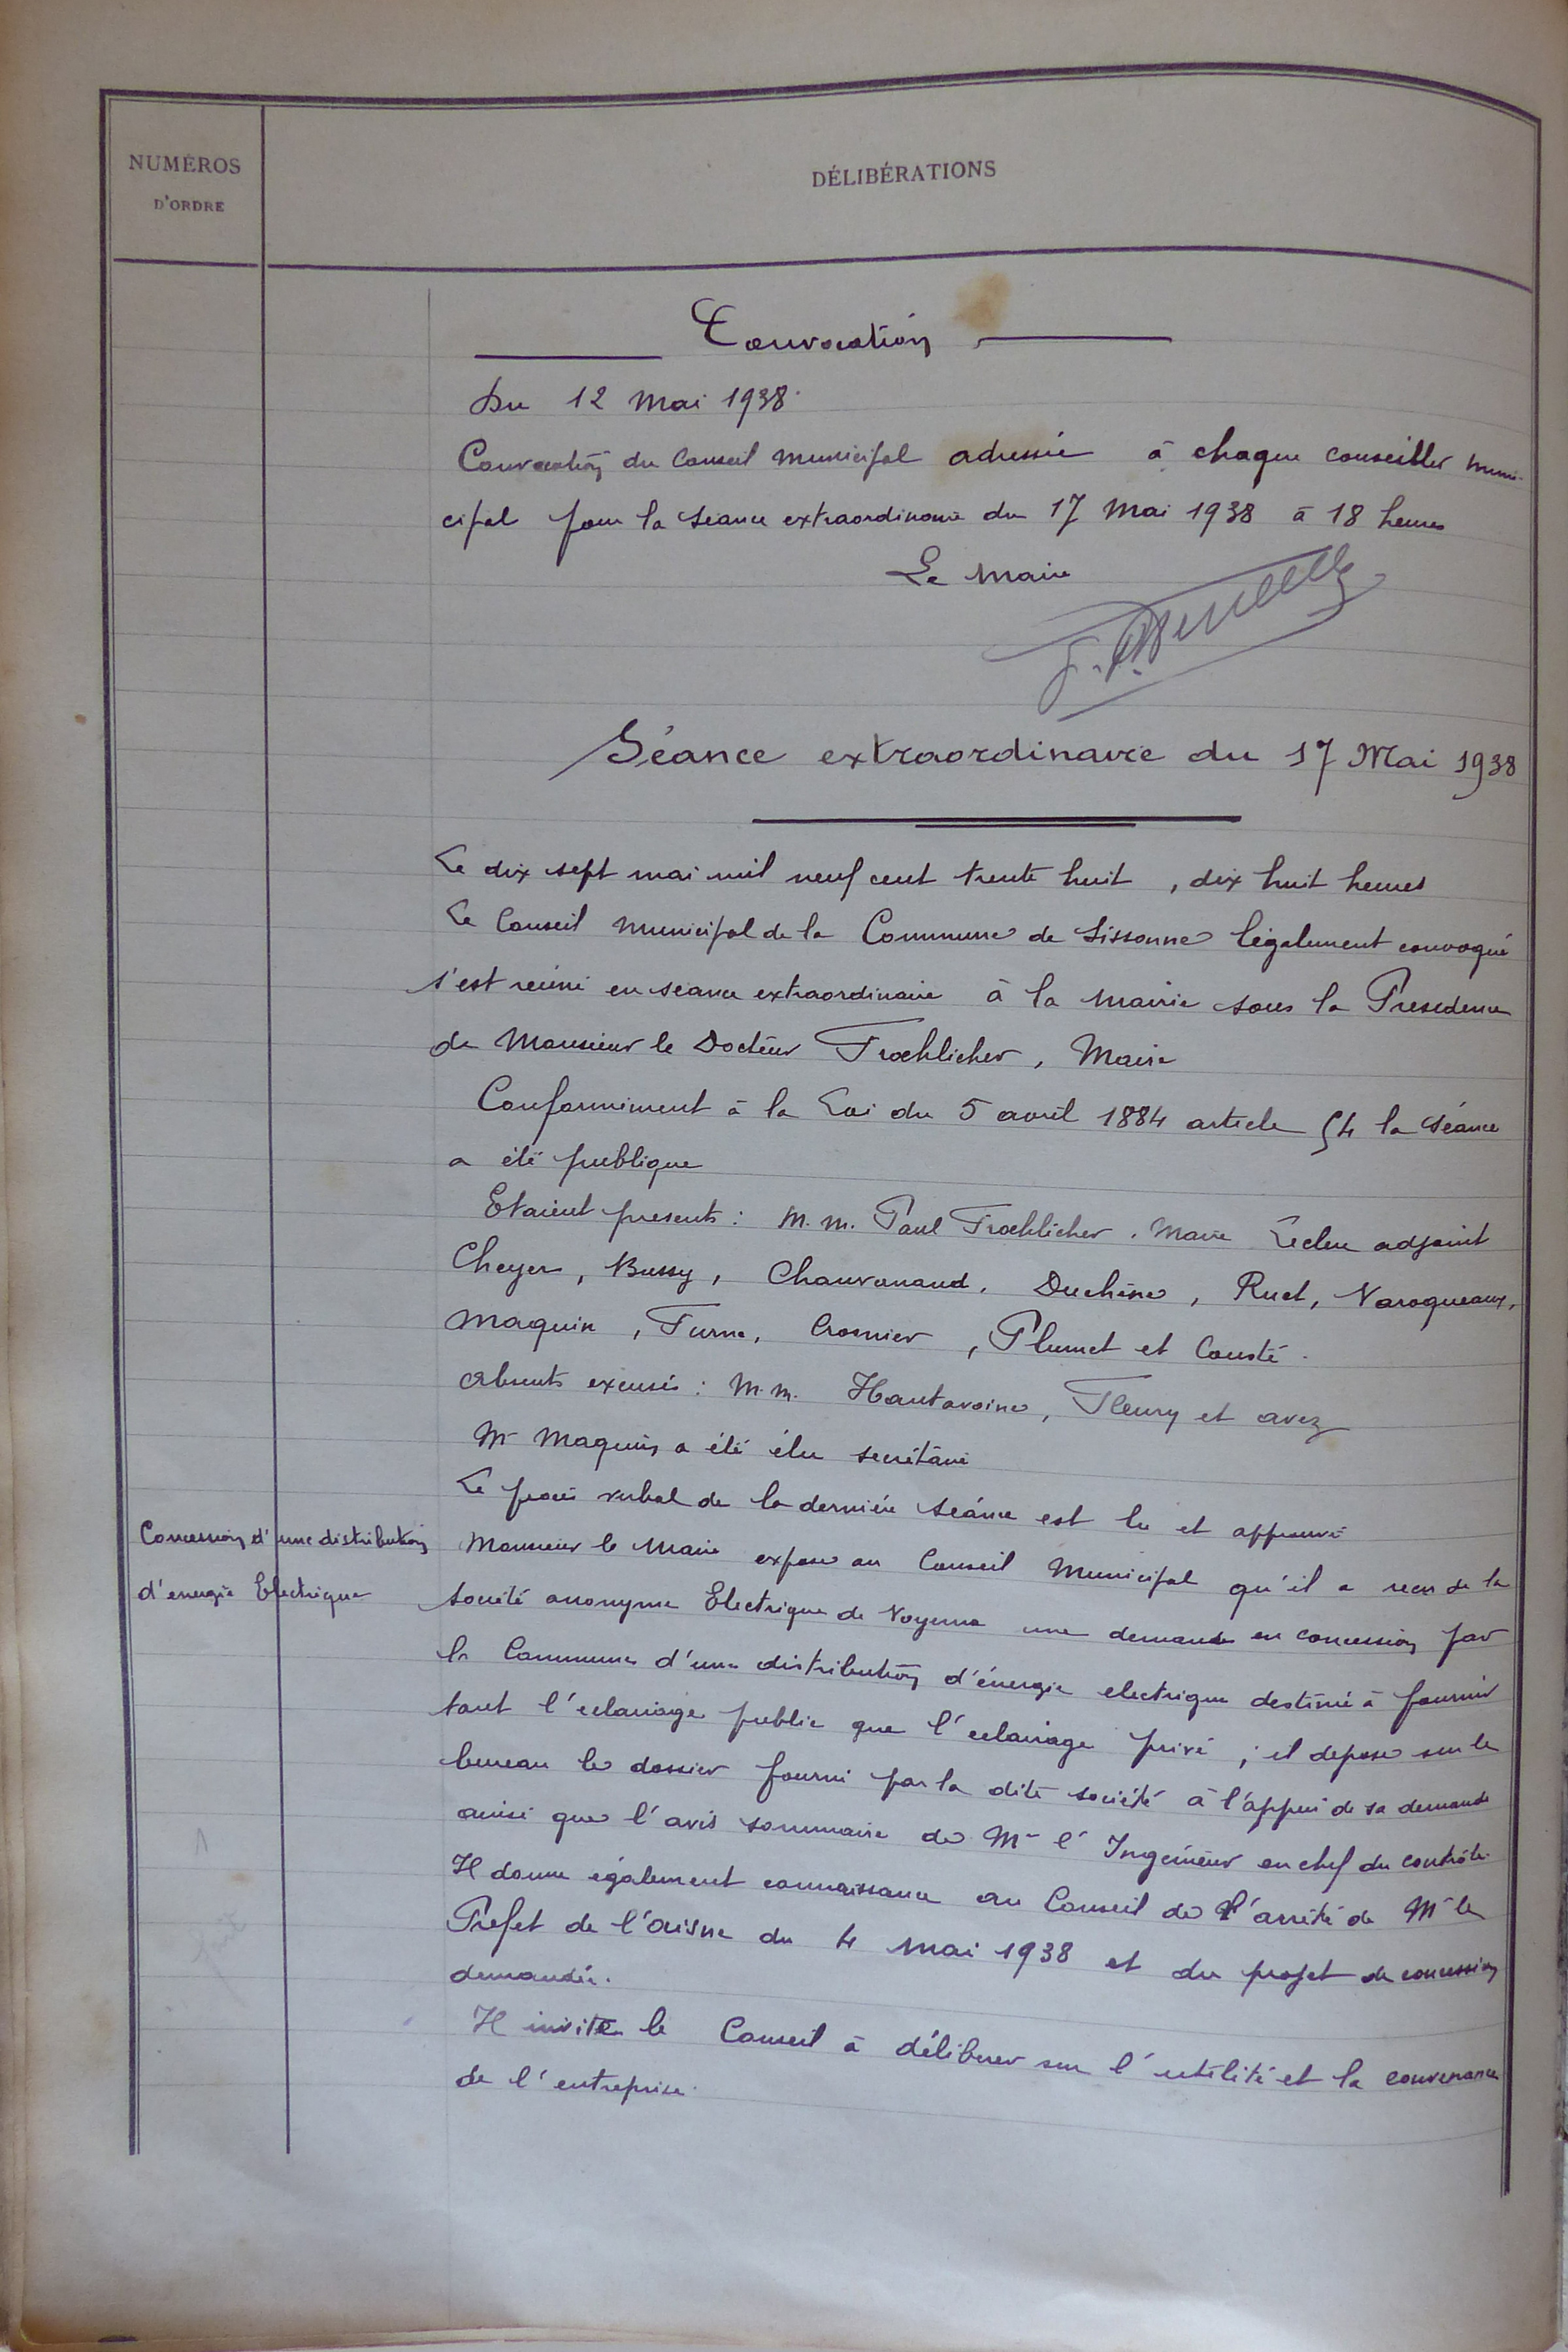 NUMÉROS
D'ORDRE
DÉLIBÉRATIONS
Convocation
Du 12 Mai 1938.
Convocation du Conseil Municipal adressée à chaque conseiller muni-
cipal pour la séance extraordinaire du 17 Mai 1938 à 18 heures
Le Maire
Séance extraordinaire du 17 Mai 1938
Le dix sept mai mil neuf cent trente huit, dix huit heures
Le Conseil Municipal de la Commune de Sissonne légalement convoqué
s'est réuni en séance extraordinaire à la Mairie sous la Présidence
de Monsieur le Docteur Froehlicher, Maire
Conformément à la Loi du 5 avril 1884 article 54 la séance
a été publique
Etaient présents : M.M. Paul Froehlicher, Maire Leclere adjoint
Cheyer, Bussy, Chauvenaud, Duchêne, Ruet, Naroqueaux,
Maquin, Turna, Crosnier, Plumet et Cousté.
Absents excusés : M.M. Hautavoine, Fleury et avez
Mr Maquin a été élu secrétaire
Le procès verbal de la dernière séance est lu et approuvé
Concession d'une distribution
d'énergie Electrique
Monsieur le Maire expose au Conseil Municipal qu'il a reçu de la
Société anonyme Electrique de Noyenna une demande en concession par
la Commune d'une distribution d'énergie electrique destinée à fournir
tant l'eclairage public que l'eclairage privé ; il depose sur le
bureau le dossier fourni par la dite société à l'appui de sa demande
ainsi que l'avis sommaire de Mr l'Ingénieur en chef du contrôle.
Il donne également connaissance au Conseil de l'arrêté de Mr le
Préfet de l'aisne du 4 mai 1938 et du projet de concession
demandée.
Il invite le Conseil à déliberer sur l'utilité et la convenance
de l'entreprise.